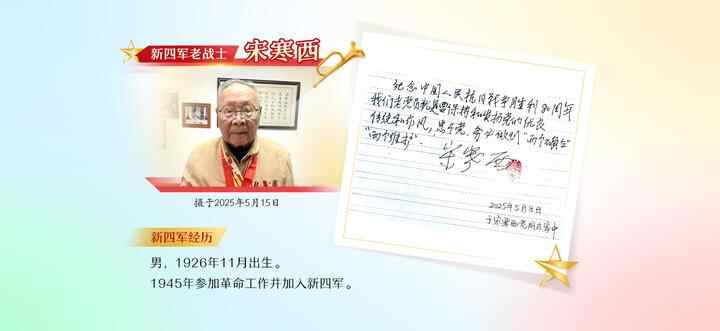 新四军老战士 宋寒西
摄于2025年5月15日
新四军经历
男，1926年11月出生。
1945年参加革命工作并加入新四军。
纪念中国人民抗日战争胜利80周年
我们老党员就是要保持和发扬党的优良
传统和作风，忠于党，务必做到“两个确立”
“两个维护”。
宋寒西
2025年5月15日
于宋寒西